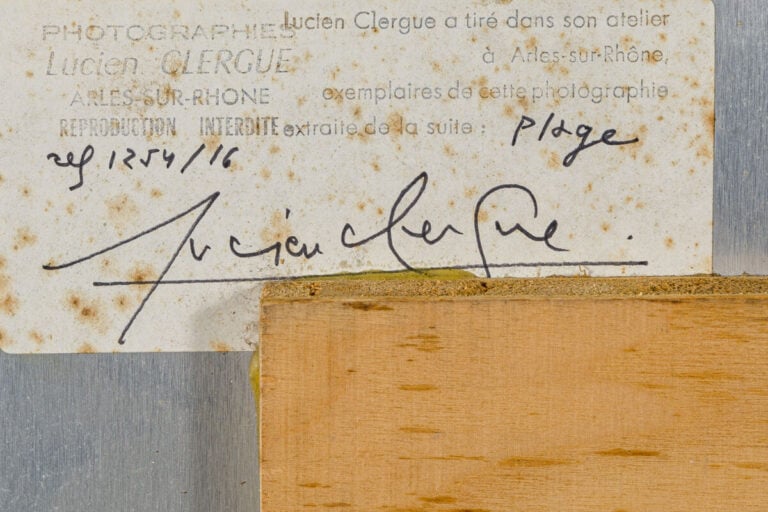 PHOTOGRAPHIES
Lucien CLERGUE
ARLES-SUR-RHONE
REPRODUCTION INTERDITE
ref 1254/16
Lucien Clergue a tiré dans son atelier
à Arles-sur-Rhône,
exemplaires de cette photographie
extraite de la suite : Plage
Lucien Clergue.